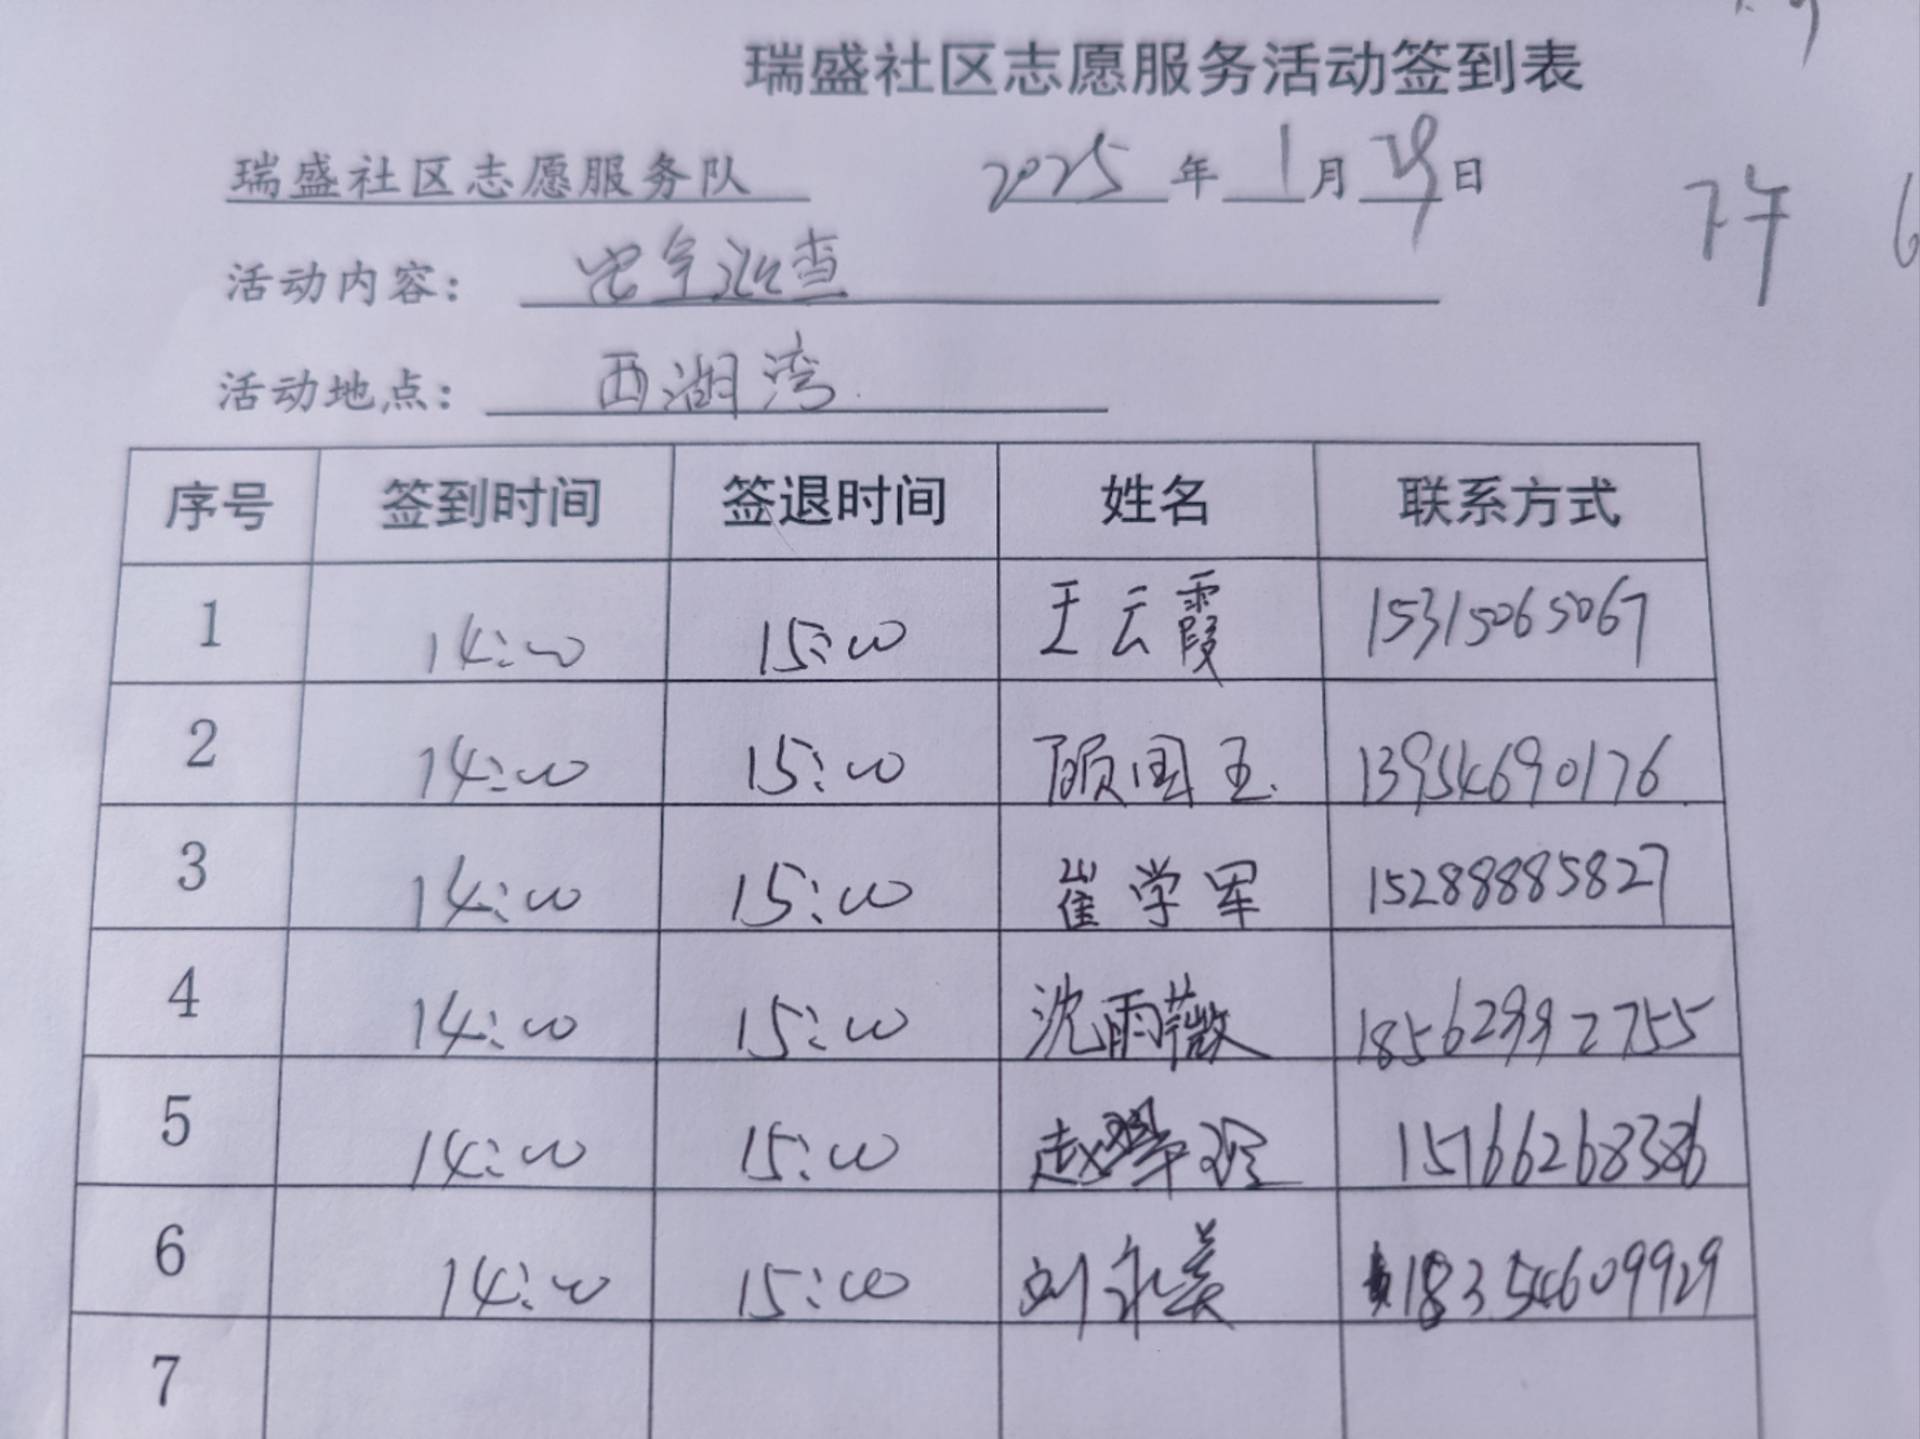 瑞盛社区志愿服务活动签到表
瑞盛社区志愿服务队 2025年1月29日
下午 6
活动内容: 安全巡查
活动地点: 西湖湾
序号 签到时间 签退时间 姓名 联系方式
1 14:00 15:00 王云霞 15315065067
2 14:00 15:00 顾国玉 13954690176
3 14:00 15:00 崔学军 15288885827
4 14:00 15:00 沈雨薇 18562992755
5 14:00 15:00 赵 15766268386
6 14:00 15:00 刘永美 18354609929
7